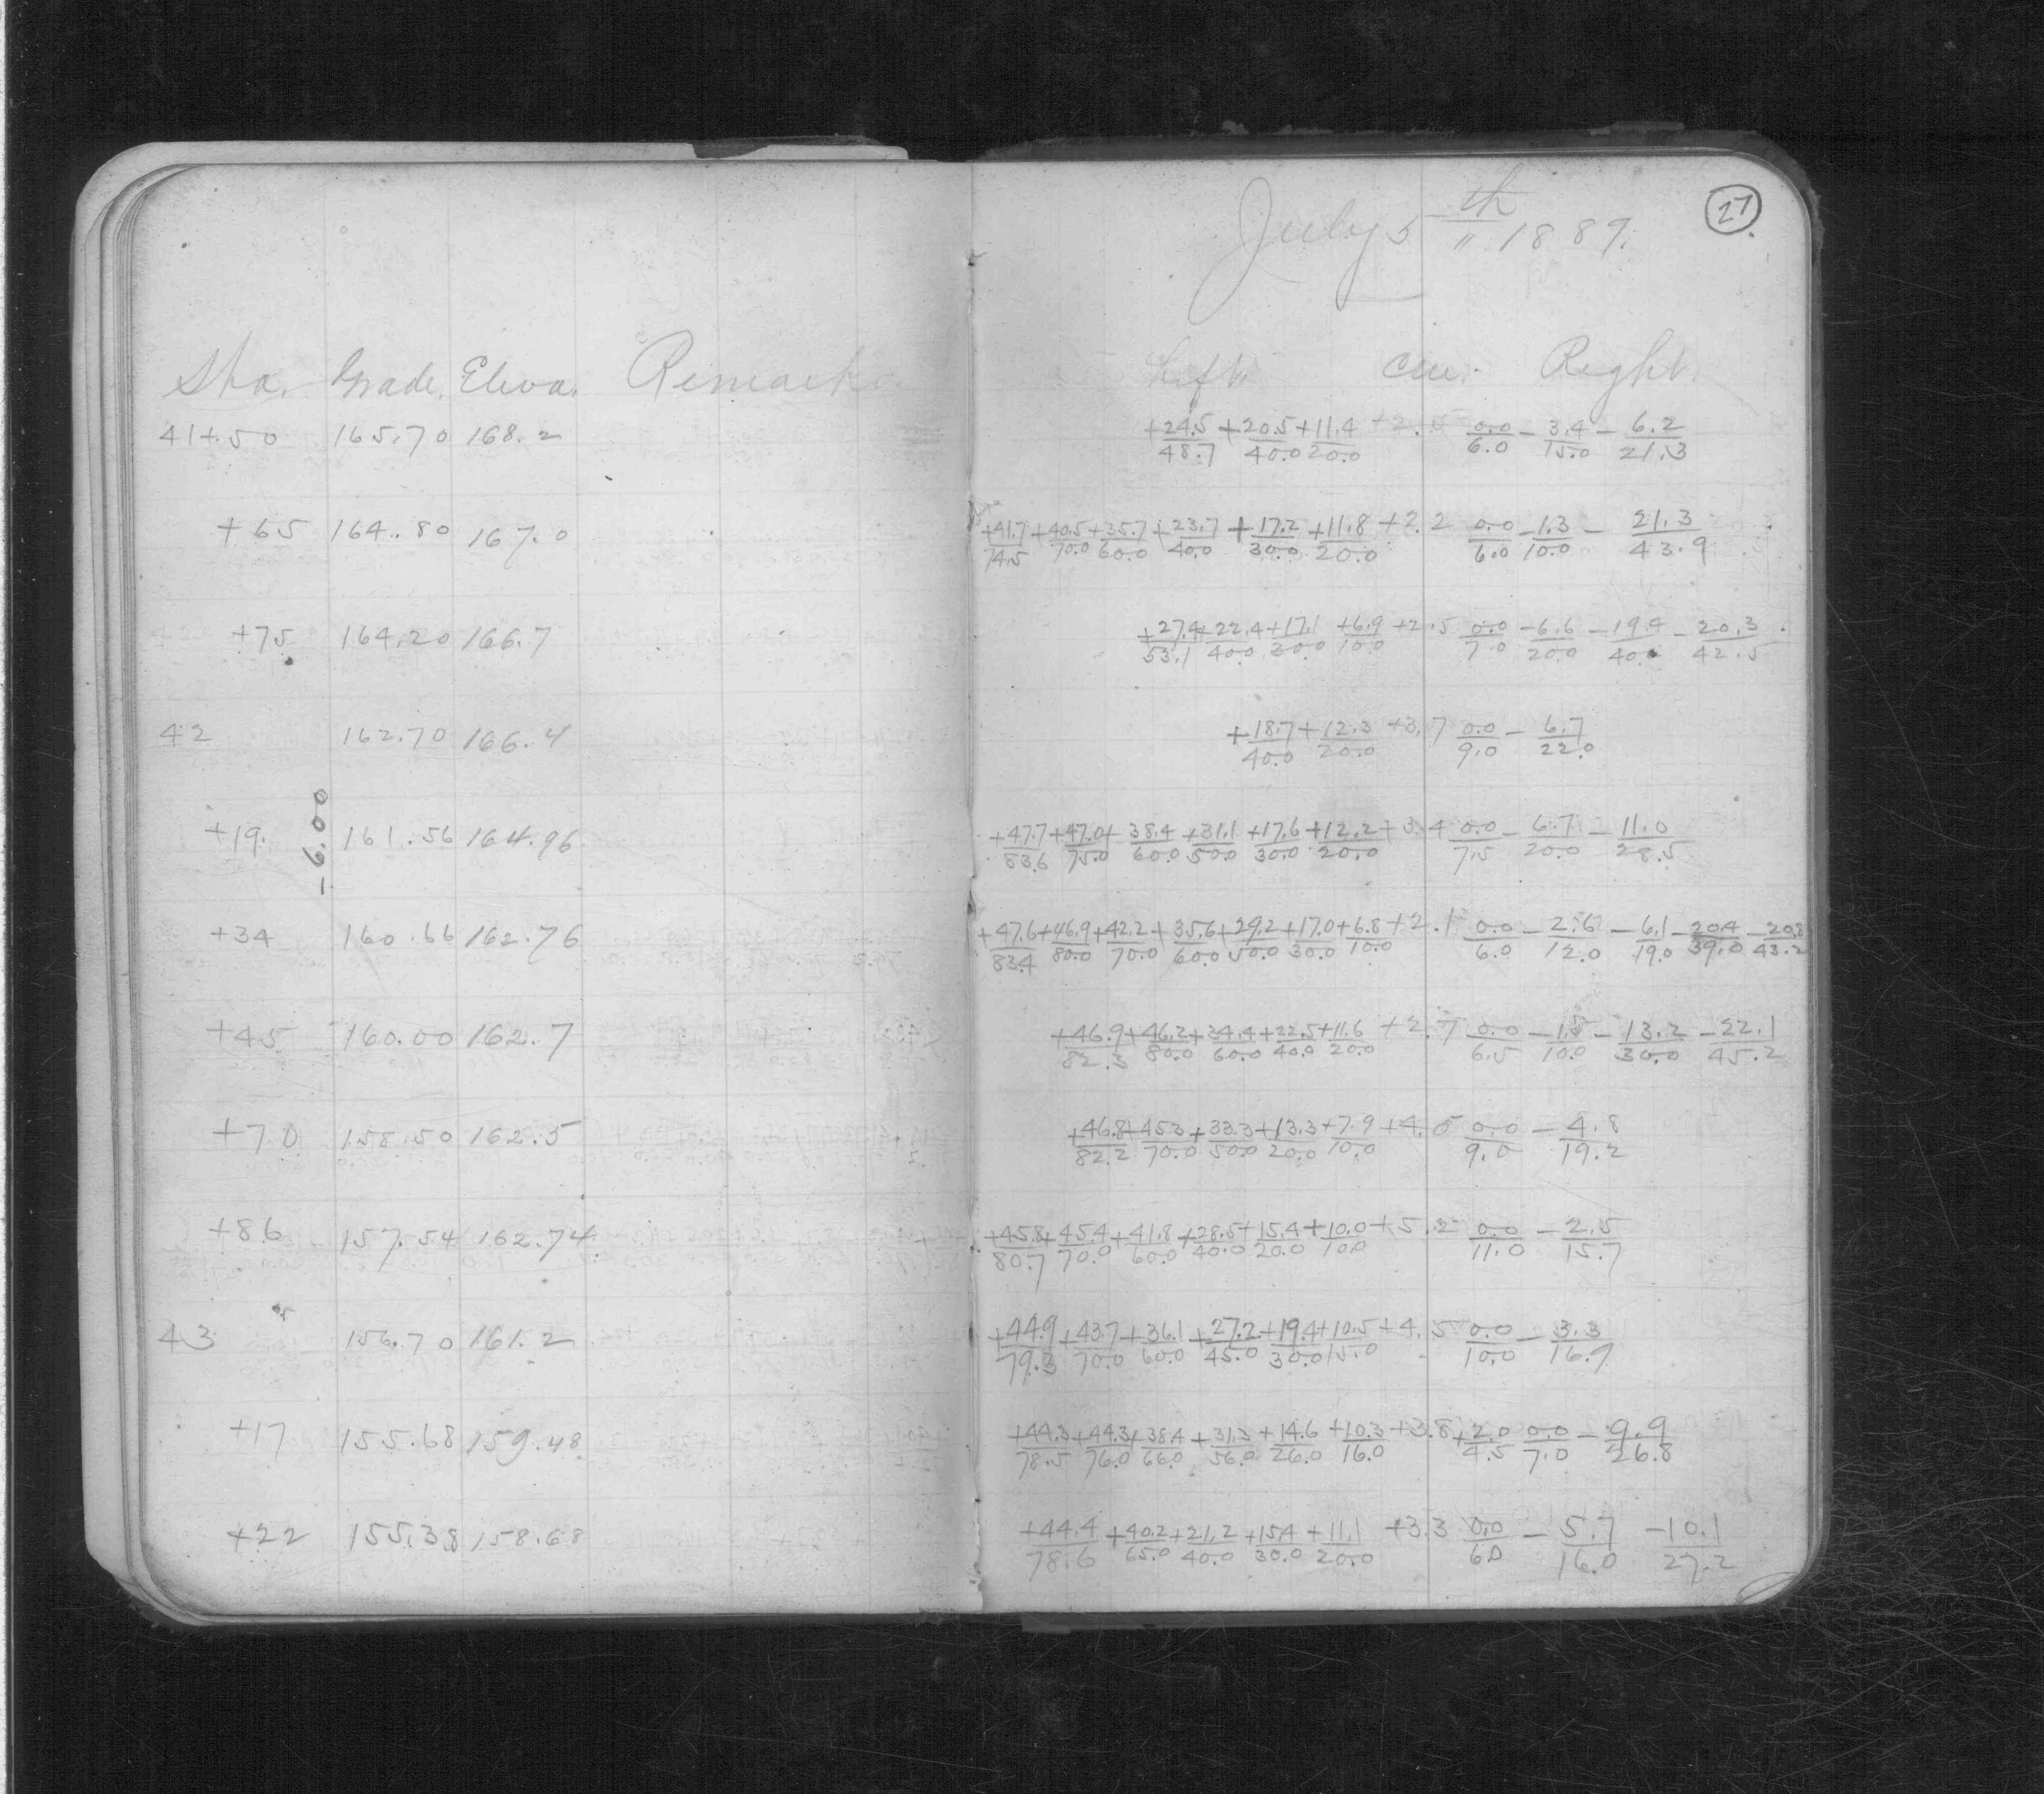 27
July 5th 1889.
Sta. Grade. Eleva. Remarks Left. Cen. Right.
41+50 165.70 168.2 +24.5/48.7 +20.5/40.0 +11.4/20.0 +2.5 0.0/6.0 -3.4/15.0 -6.2/21.3
+65 164.80 167.0 +41.7/74.5 +40.5/70.0 +35.7/60.0 +23.7/40.0 +17.2/30.0 +11.8/20.0 +2.2 0.0/6.0 -1.3/10.0 -21.3/43.9
+75 164.20 166.7 +27.4/53.1 +22.4/40.0 +17.1/30.0 +6.9/10.0 +2.5 0.0/7.0 -6.6/20.0 -19.4/40.0 -20.3/42.5
42 162.70 166.4 +18.7/40.0 +12.3/20.0 +3.7 0.0/9.0 -6.7/22.0
-6.00
+19. 161.56 164.96 +47.7/83.6 +47.0/75.0 +38.4/60.0 +31.1/50.0 +17.6/30.0 +12.2/20.0 +3.4 0.0/7.5 -6.7/20.0 -11.0/28.5
+34 160.66 162.76 +47.6/83.4 +46.9/80.0 +42.2/70.0 +35.6/60.0 +29.2/50.0 +17.0/30.0 +6.8/10.0 +2.1 0.0/6.0 -2.6/12.0 -6.1/19.0 -20.4/39.0 -20.8/43.2
+45 160.00 162.7 +46.9/82.3 +46.2/80.0 +34.4/60.0 +22.5/40.0 +11.6/20.0 +2.7 0.0/6.5 -1.5/10.0 -13.2/30.0 -22.1/45.2
+70 158.50 162.5 +46.8/82.2 +45.3/70.0 +33.3/50.0 +13.3/20.0 +7.9/10.0 +4.0 0.0/9.0 -4.8/19.2
+86 157.54 162.74 +45.8/80.7 +45.4/70.0 +41.8/60.0 +28.5/40.0 +15.4/20.0 +10.0/10.0 +5.2 0.0/11.0 -2.5/15.7
43 156.70 161.2 +44.9/79.3 +43.7/70.0 +36.1/60.0 +27.2/45.0 +19.4/30.0 +10.5/15.0 +4.5 0.0/10.0 -3.3/16.9
+17 155.68 159.48 +44.3/78.5 +44.3/76.0 +38.4/66.0 +31.3/56.0 +14.6/26.0 +10.3/16.0 +3.8 +2.0/4.5 0.0/7.0 -9.9/26.8
+22 155.38 158.68 +44.4/78.6 +40.2/65.0 +21.2/40.0 +15.4/30.0 +11.1/20.0 +3.3 0.0/6.0 -5.7/16.0 -10.1/27.2